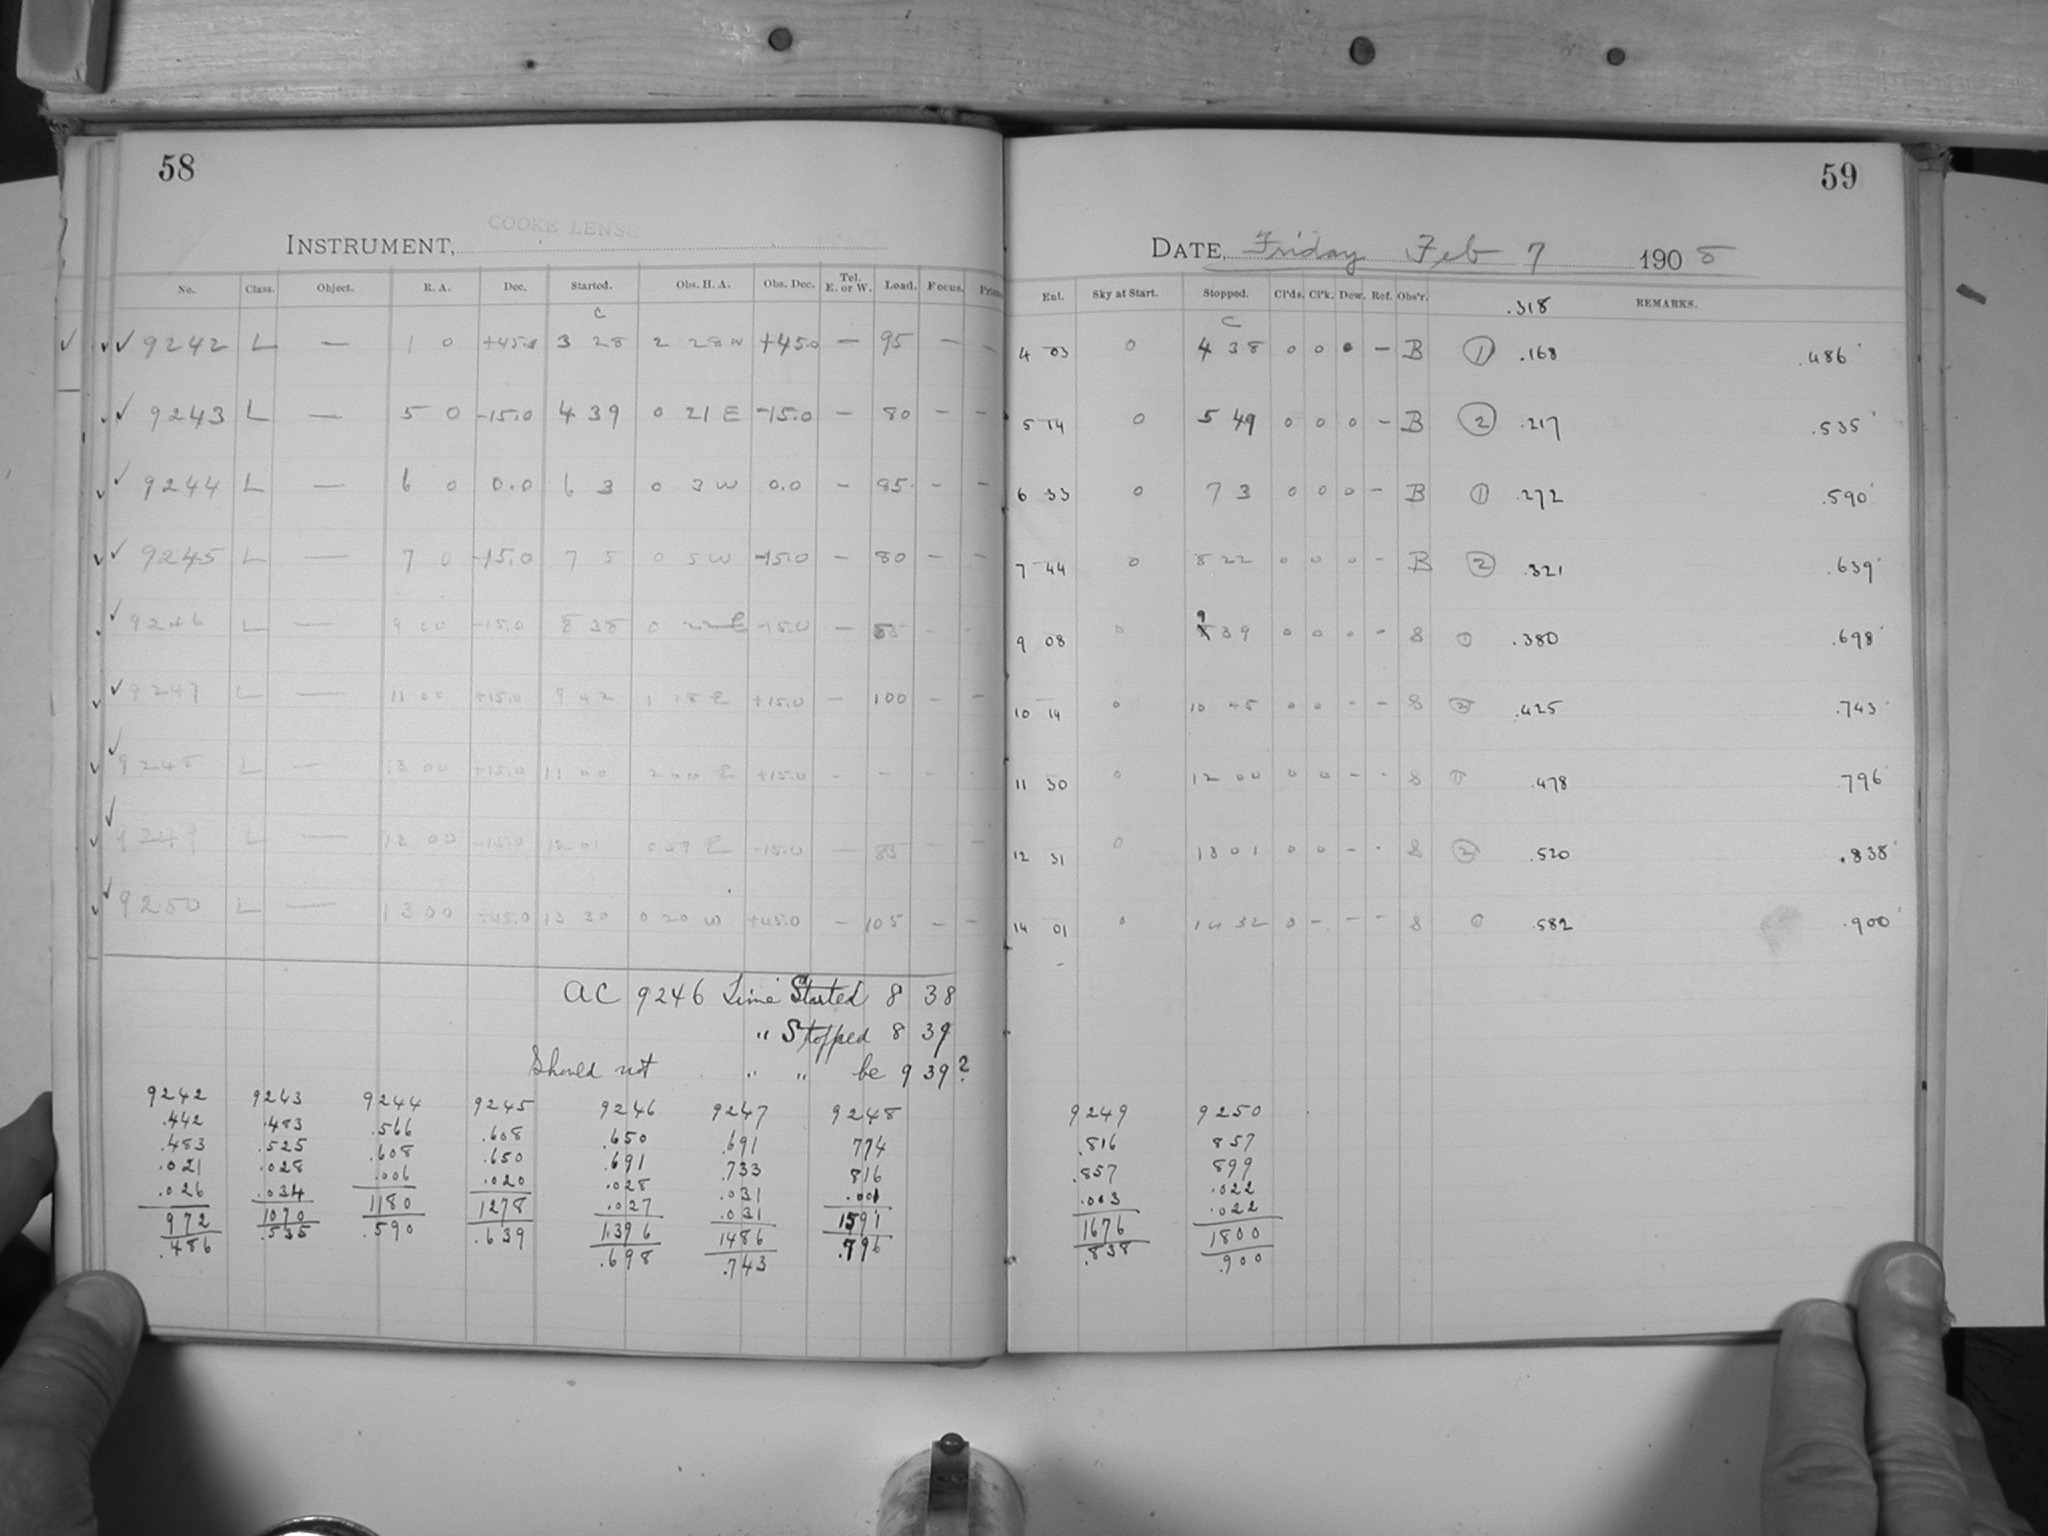 58
COOKE LENSE
INSTRUMENT,
No. Class. Object. R. A. Dec. Started. Obs. H. A. Obs. Dec. Tel. E. or W. Load. Focus.
C
9242 L — 1 0 +45.0 3 28 2 28 W +45.0 — 95 — —
9243 L — 5 0 -15.0 4 39 0 21 E -15.0 — 80 — —
9244 L — 6 0 0.0 6 3 0 3 W 0.0 — 95 — —
9245 L — 7 0 -15.0 7 5 0 5 W -15.0 — 80 — —
9246 L — 9 00 -15.0 8 38 0 E -15.0 —
9247 L — 11 00 +15.0 9 42 1 18 E +15.0 — 100 — —
9248 L — 13 00 +15.0 11 00 2 00 E +15.0 - - - -
9249 L — 13 00 -15.0 12 01 0 59 E -15.0 — 85 - -
9250 L — 13 00 +45.0 13 30 0 20 W +45.0 — 105 — —
AC 9246 Time Started 8 38
" Stopped 8 39
Should not " " be 9 39?
9242 9243 9244 9245 9246 9247 9248
.442 .483 .566 .608 .650 .691 774
.483 .525 .608 .650 .691 .733 816
.021 .028 .006 .020 .028 .031 .001
.026 .034 .027 .031
972 1070 1180 1278 1396 1486 1591
.486 .535 .590 .639 .698 .743 .796
59
DATE, Friday Feb 7 1908
Ent. Sky at Start. Stopped. Cl'ds. Cl'k. Dew. Ref. Obs'r. REMARKS.
.318
C
4 03 0 4 38 0 0 0 — B 1 .168 .486
5 14 0 5 49 0 0 0 — B 2 .217 .535
6 33 0 7 3 0 0 0 — B 1 .272 .590
7 44 0 8 22 0 0 0 - B 2 .321 .639
9 08 0 9 39 0 0 0 - S 1 .380 .698
10 14 0 10 45 0 0 - - S 2 .425 .743
11 30 0 12 00 0 0 - - S 1 .478 .796
12 31 0 13 01 0 0 - - S 2 .520 .838
14 01 0 14 32 0 - - - S 1 .582 .900
9249 9250
.816 857
.857 899
.003 .022
.022
1676 1800
.838 .900